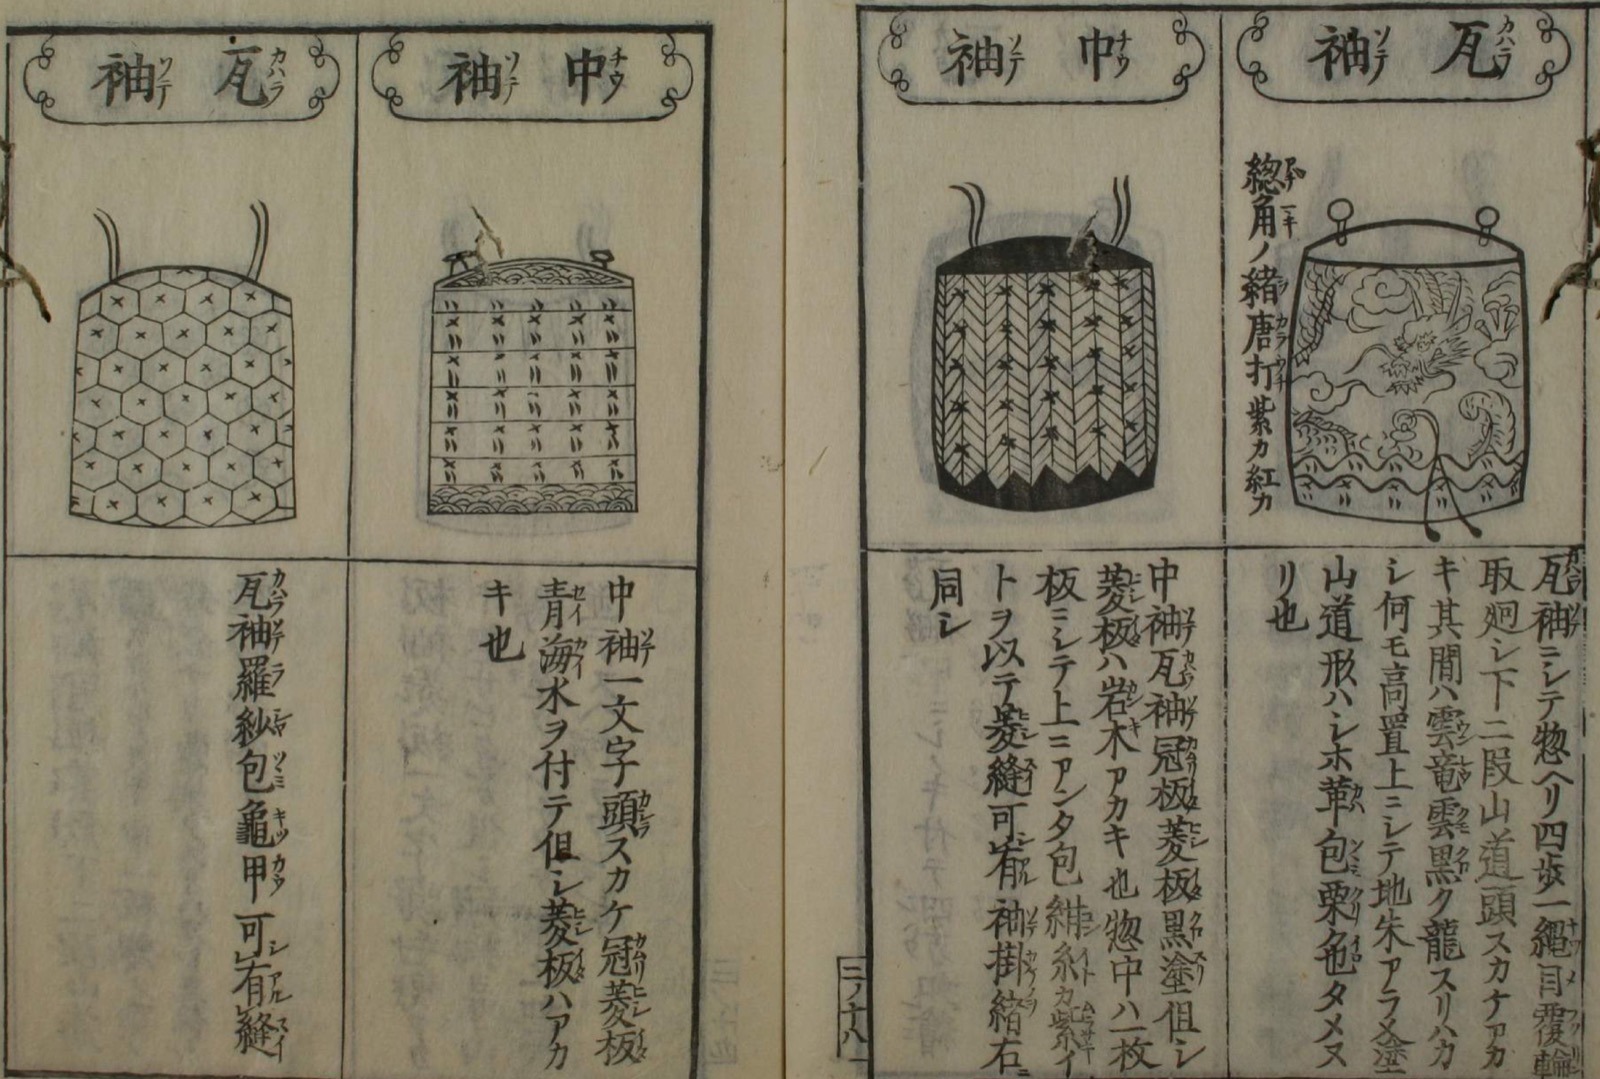 瓦袖
総角ノ緒唐打紫カ紅カ
瓦袖ニシテ惣ヘリ四歩一縄目覆輪
取廻シ下ニ段山道頭スカケアカ
キ其間ハ雲竜雲黒ク龍スリハカ
シ何モ高置上ニシテ地朱アラ又塗
山道形ハシホ革包栗色タメヌ
リ也
中袖
中袖瓦袖冠板菱板黒塗但シ
菱板ハ岩木アカキ也惣中ハ一枚
板ニシテ上ニアンタ包紺糸カ紫イ
トヲ以テ菱縫可有袖掛緒右ニ
同シ
三ノ十八
中袖
中袖一文字頭スカケ冠菱板
青海水ヲ付テ但シ菱板ハアカ
キ也
瓦袖
瓦袖羅紗包亀甲可有縫